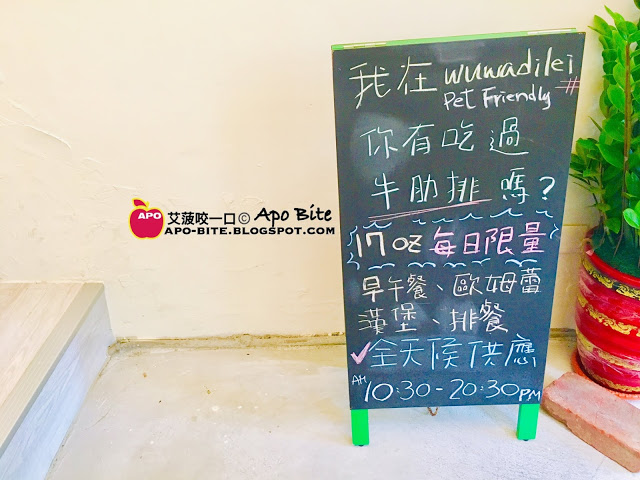 我在 wuwadilei
Pet Friendly #
你有吃過
牛肋排嗎？
17oz每日限量
早午餐、歐姆蕾
漢堡、排餐
✓全天候供應
AM 10:30-20:30 PM
APO
艾菠咬一口© Apo Bite
APO-BITE.BLOGSPOT.COM